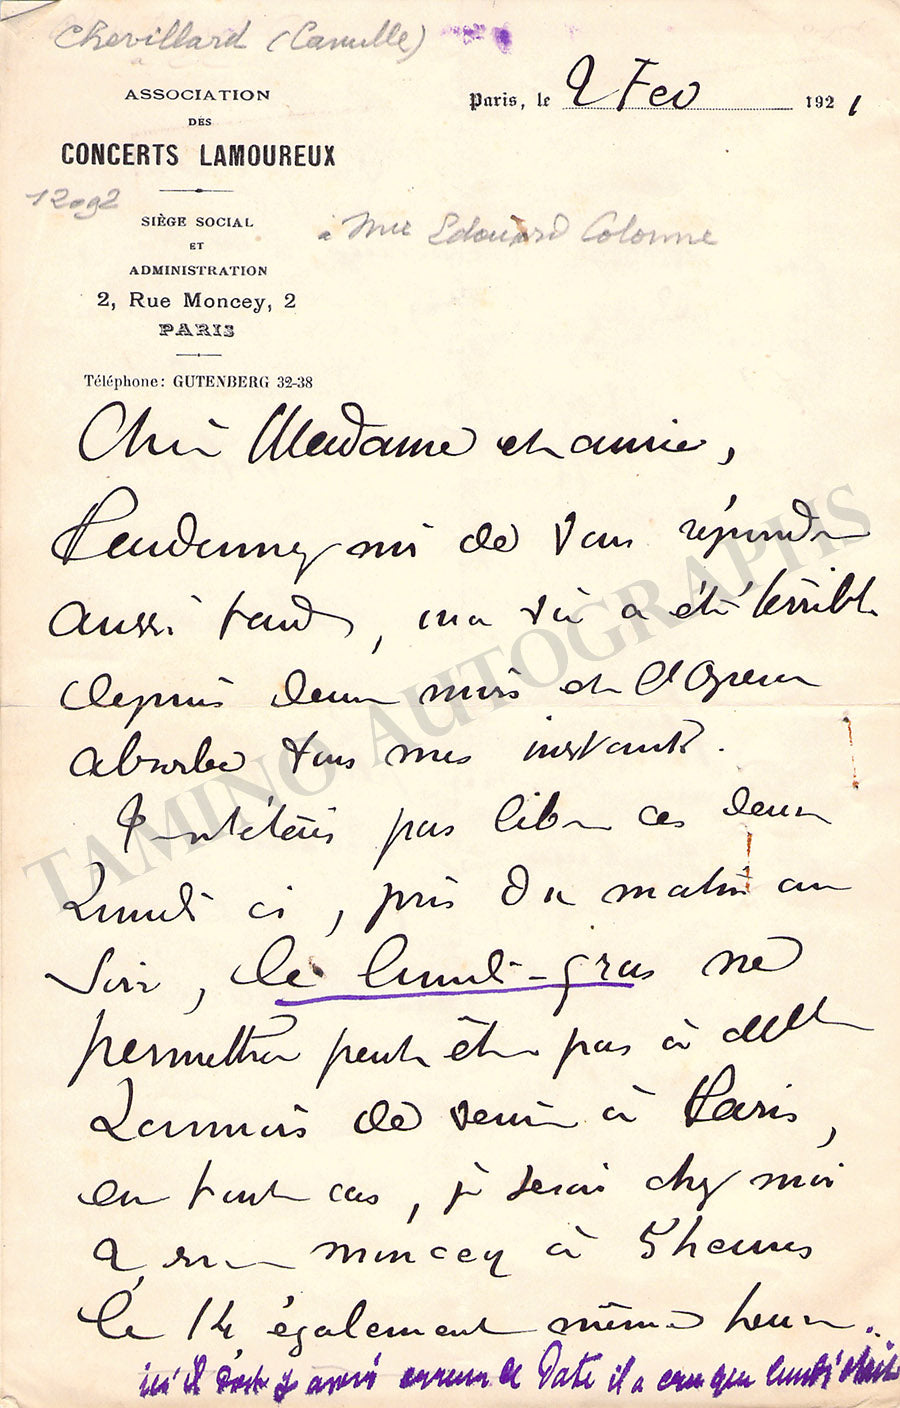 Chevillard (Camille)
ASSOCIATION
DES
CONCERTS LAMOUREUX
Paris, le 2 Fev 1921
12092
SIÈGE SOCIAL
ET
ADMINISTRATION
2, Rue Moncey, 2
PARIS
Téléphone: GUTENBERG 32-38
à Mme Edouard Colonne
Chère Madame et amie,
Pardonnez moi de vous répondre
aussi tard, ma vie a été terrible
depuis deux mois et l'Opéra
absorbe tous mes instants.
pas libre ces deux
Lundis ci, pris du matin au
Soir, le lundi-gras ne
permettra peut être pas à Mlle
de venir à Paris,
en tout cas, je serai chez moi
2, rue Moncey à 5 heures
le 14 également même heure.
ici il doit y avoir erreur de Date il a cru que lundi était
TAMINO AUTOGRAPHS